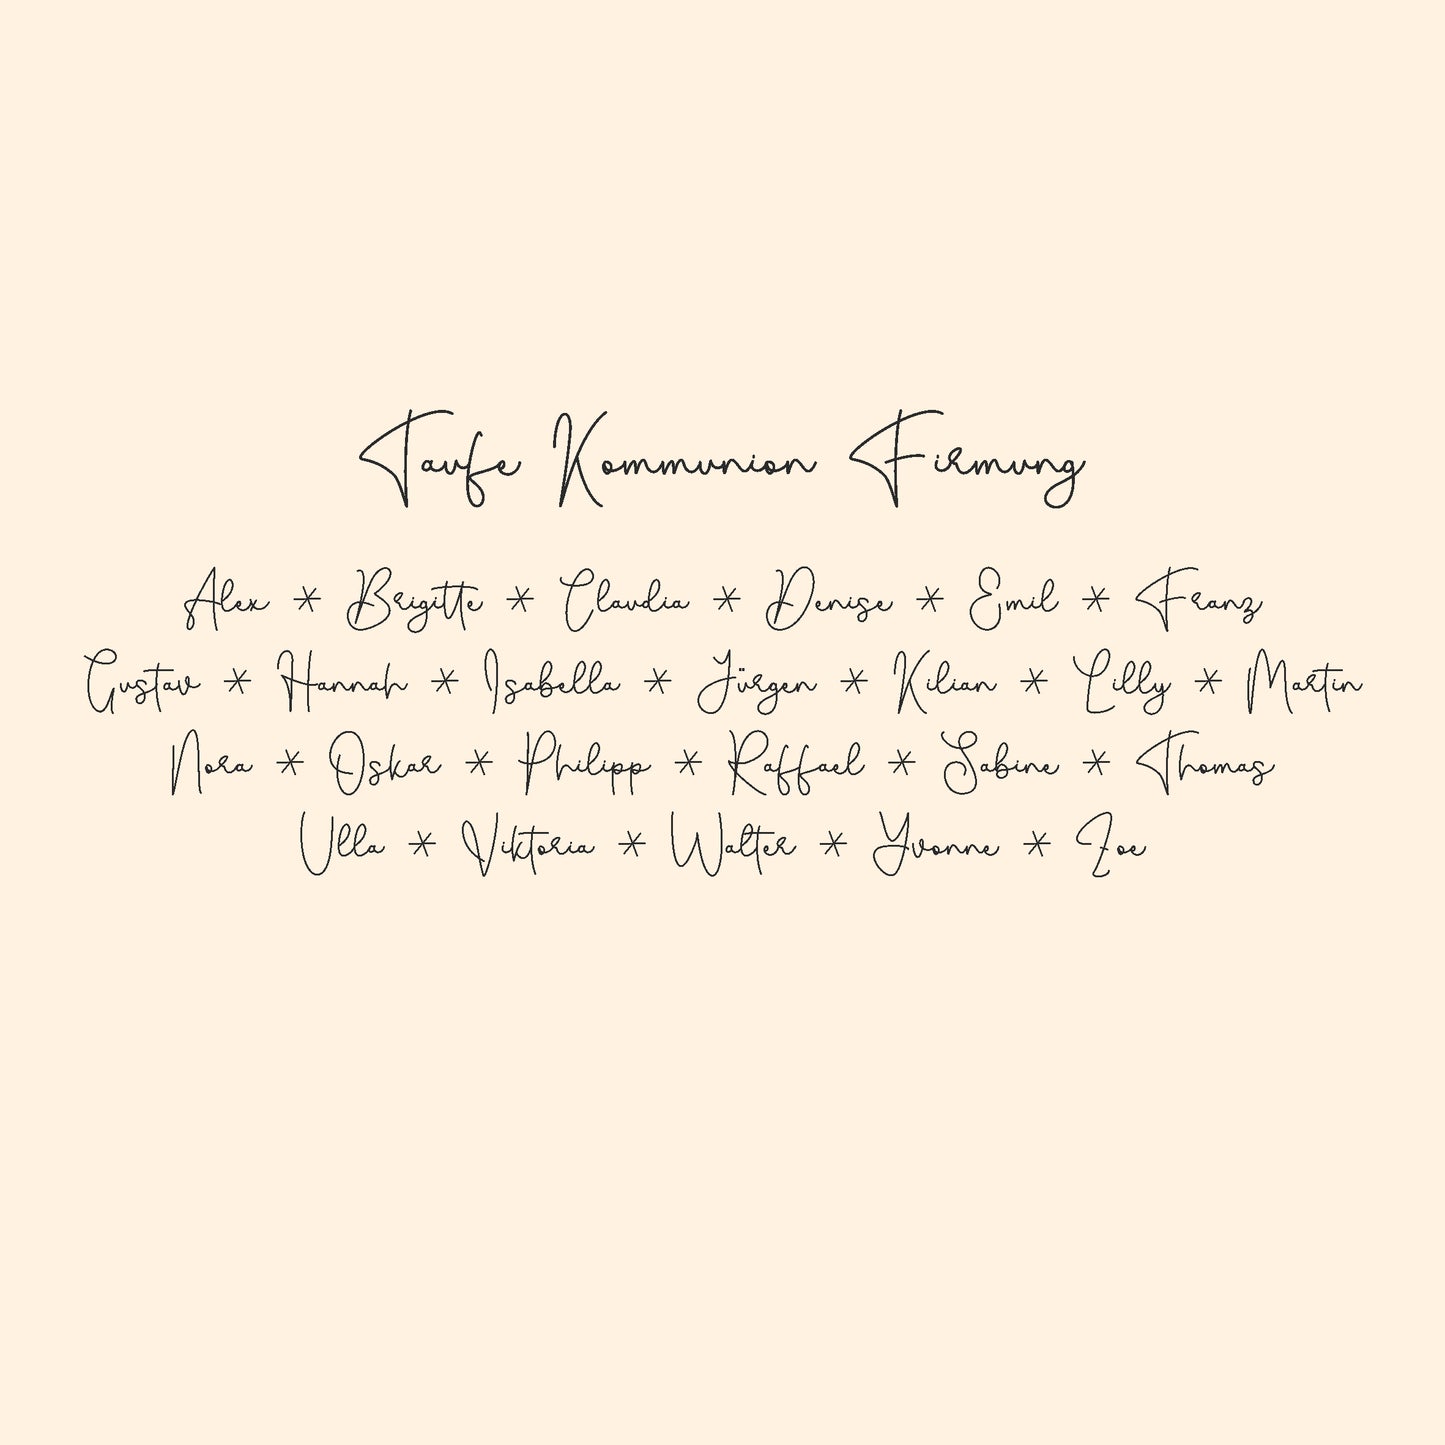 Taufe Kommunion Firmung
Alex * Brigitte * Claudia * Denise * Emil * Franz
Gustav * Hannah * Isabella * Jürgen * Kilian * Lilly * Martin
Nora * Oskar * Philipp * Raffael * Sabine * Thomas
Ulla * Viktoria * Walter * Yvonne * Zoe